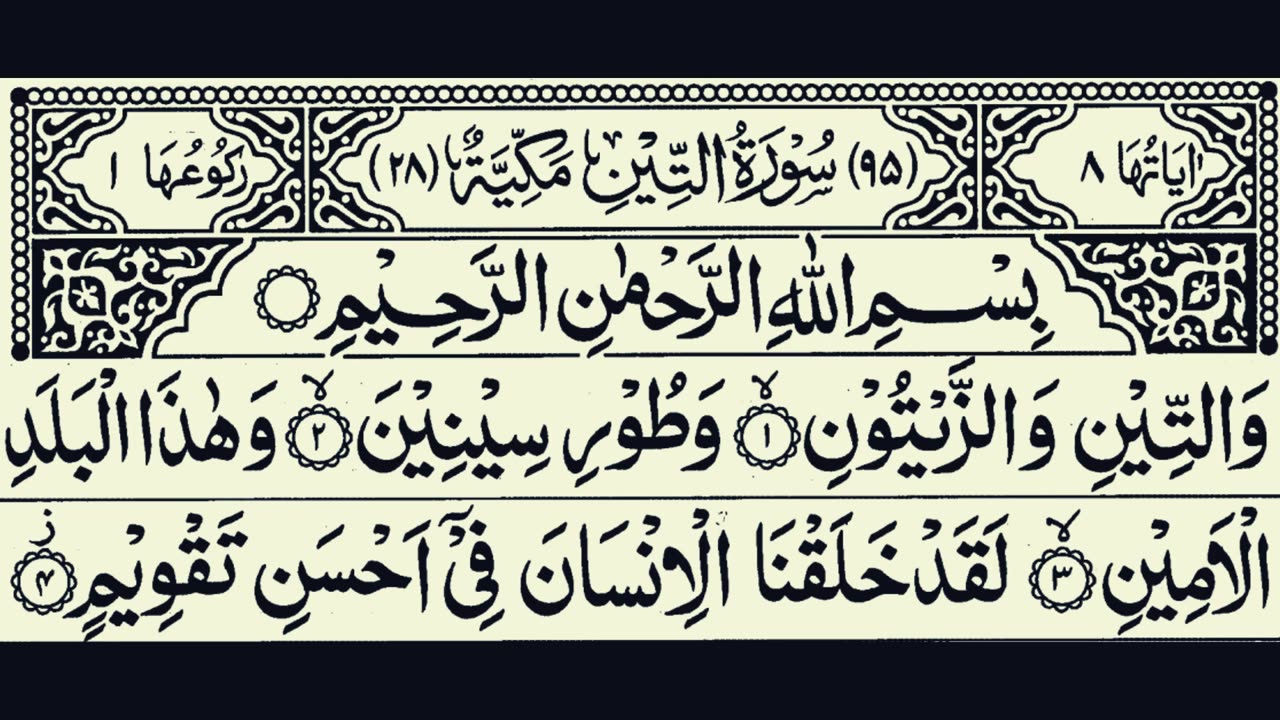 اٰیَاتُهَا ٨ (٩٥) سُوْرَةُ التِّيْنِ مَكِّيَّةٌ (٢٨) رُكُوْعُهَا ١
بِسْمِ اللّٰهِ الرَّحْمٰنِ الرَّحِيْمِ
وَالتِّيْنِ وَالزَّيْتُوْنِ ۙ ١ وَطُوْرِ سِيْنِيْنَ ۙ ٢ وَهٰذَا الْبَلَدِ
الْاَمِيْنِ ۙ ٣ لَقَدْ خَلَقْنَا الْاِنْسَانَ فِيْۤ اَحْسَنِ تَقْوِيْمٍ ز ۴